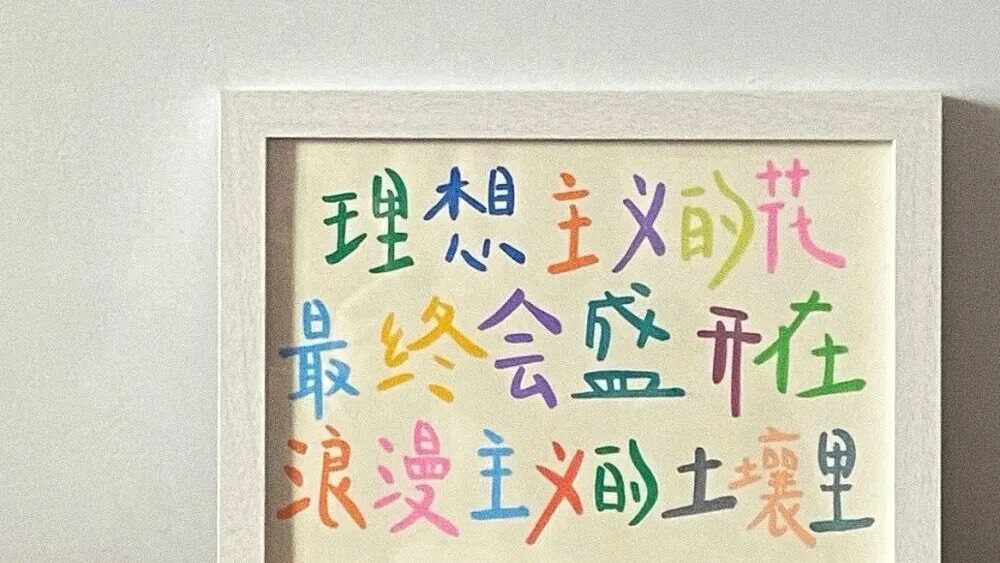 理想主义的花
最终会盛开在
浪漫主义的土壤里